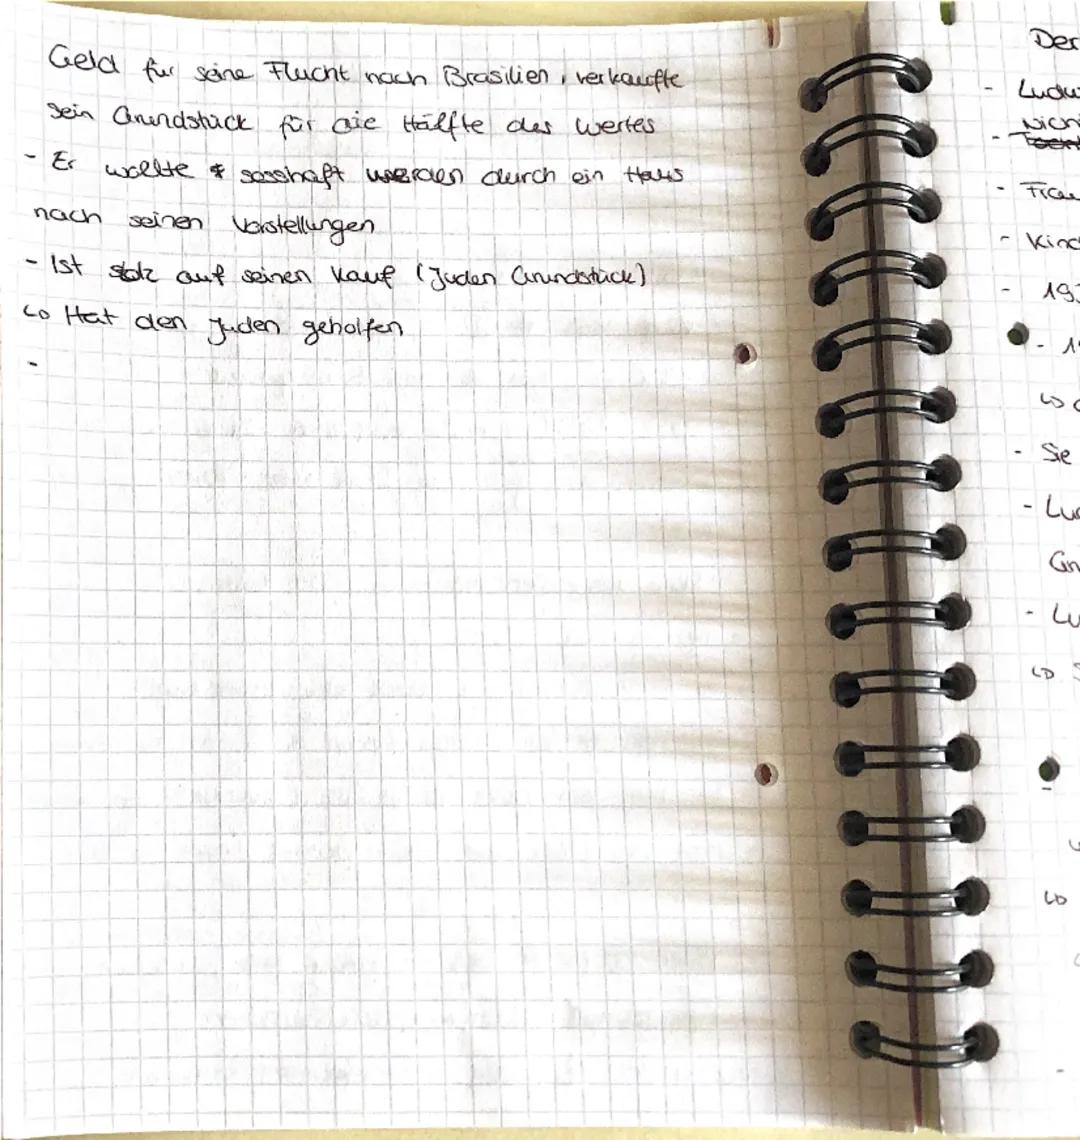 Geld für seine Flucht nach Brasilien, verkaufte
sein Grundstück für die Hälfte des Wertes
- Er wollte sesshaft werden durch ein Haus
nach seinen Vorstellungen
- Ist stolz auf seinen Kauf (Juden Grundstück)
↳ Hat den Juden geholfen
-
Der
- Ludw
- Nich
- Frau
- Kind
- 193
- 1
- Sie
- Lu
- Lu